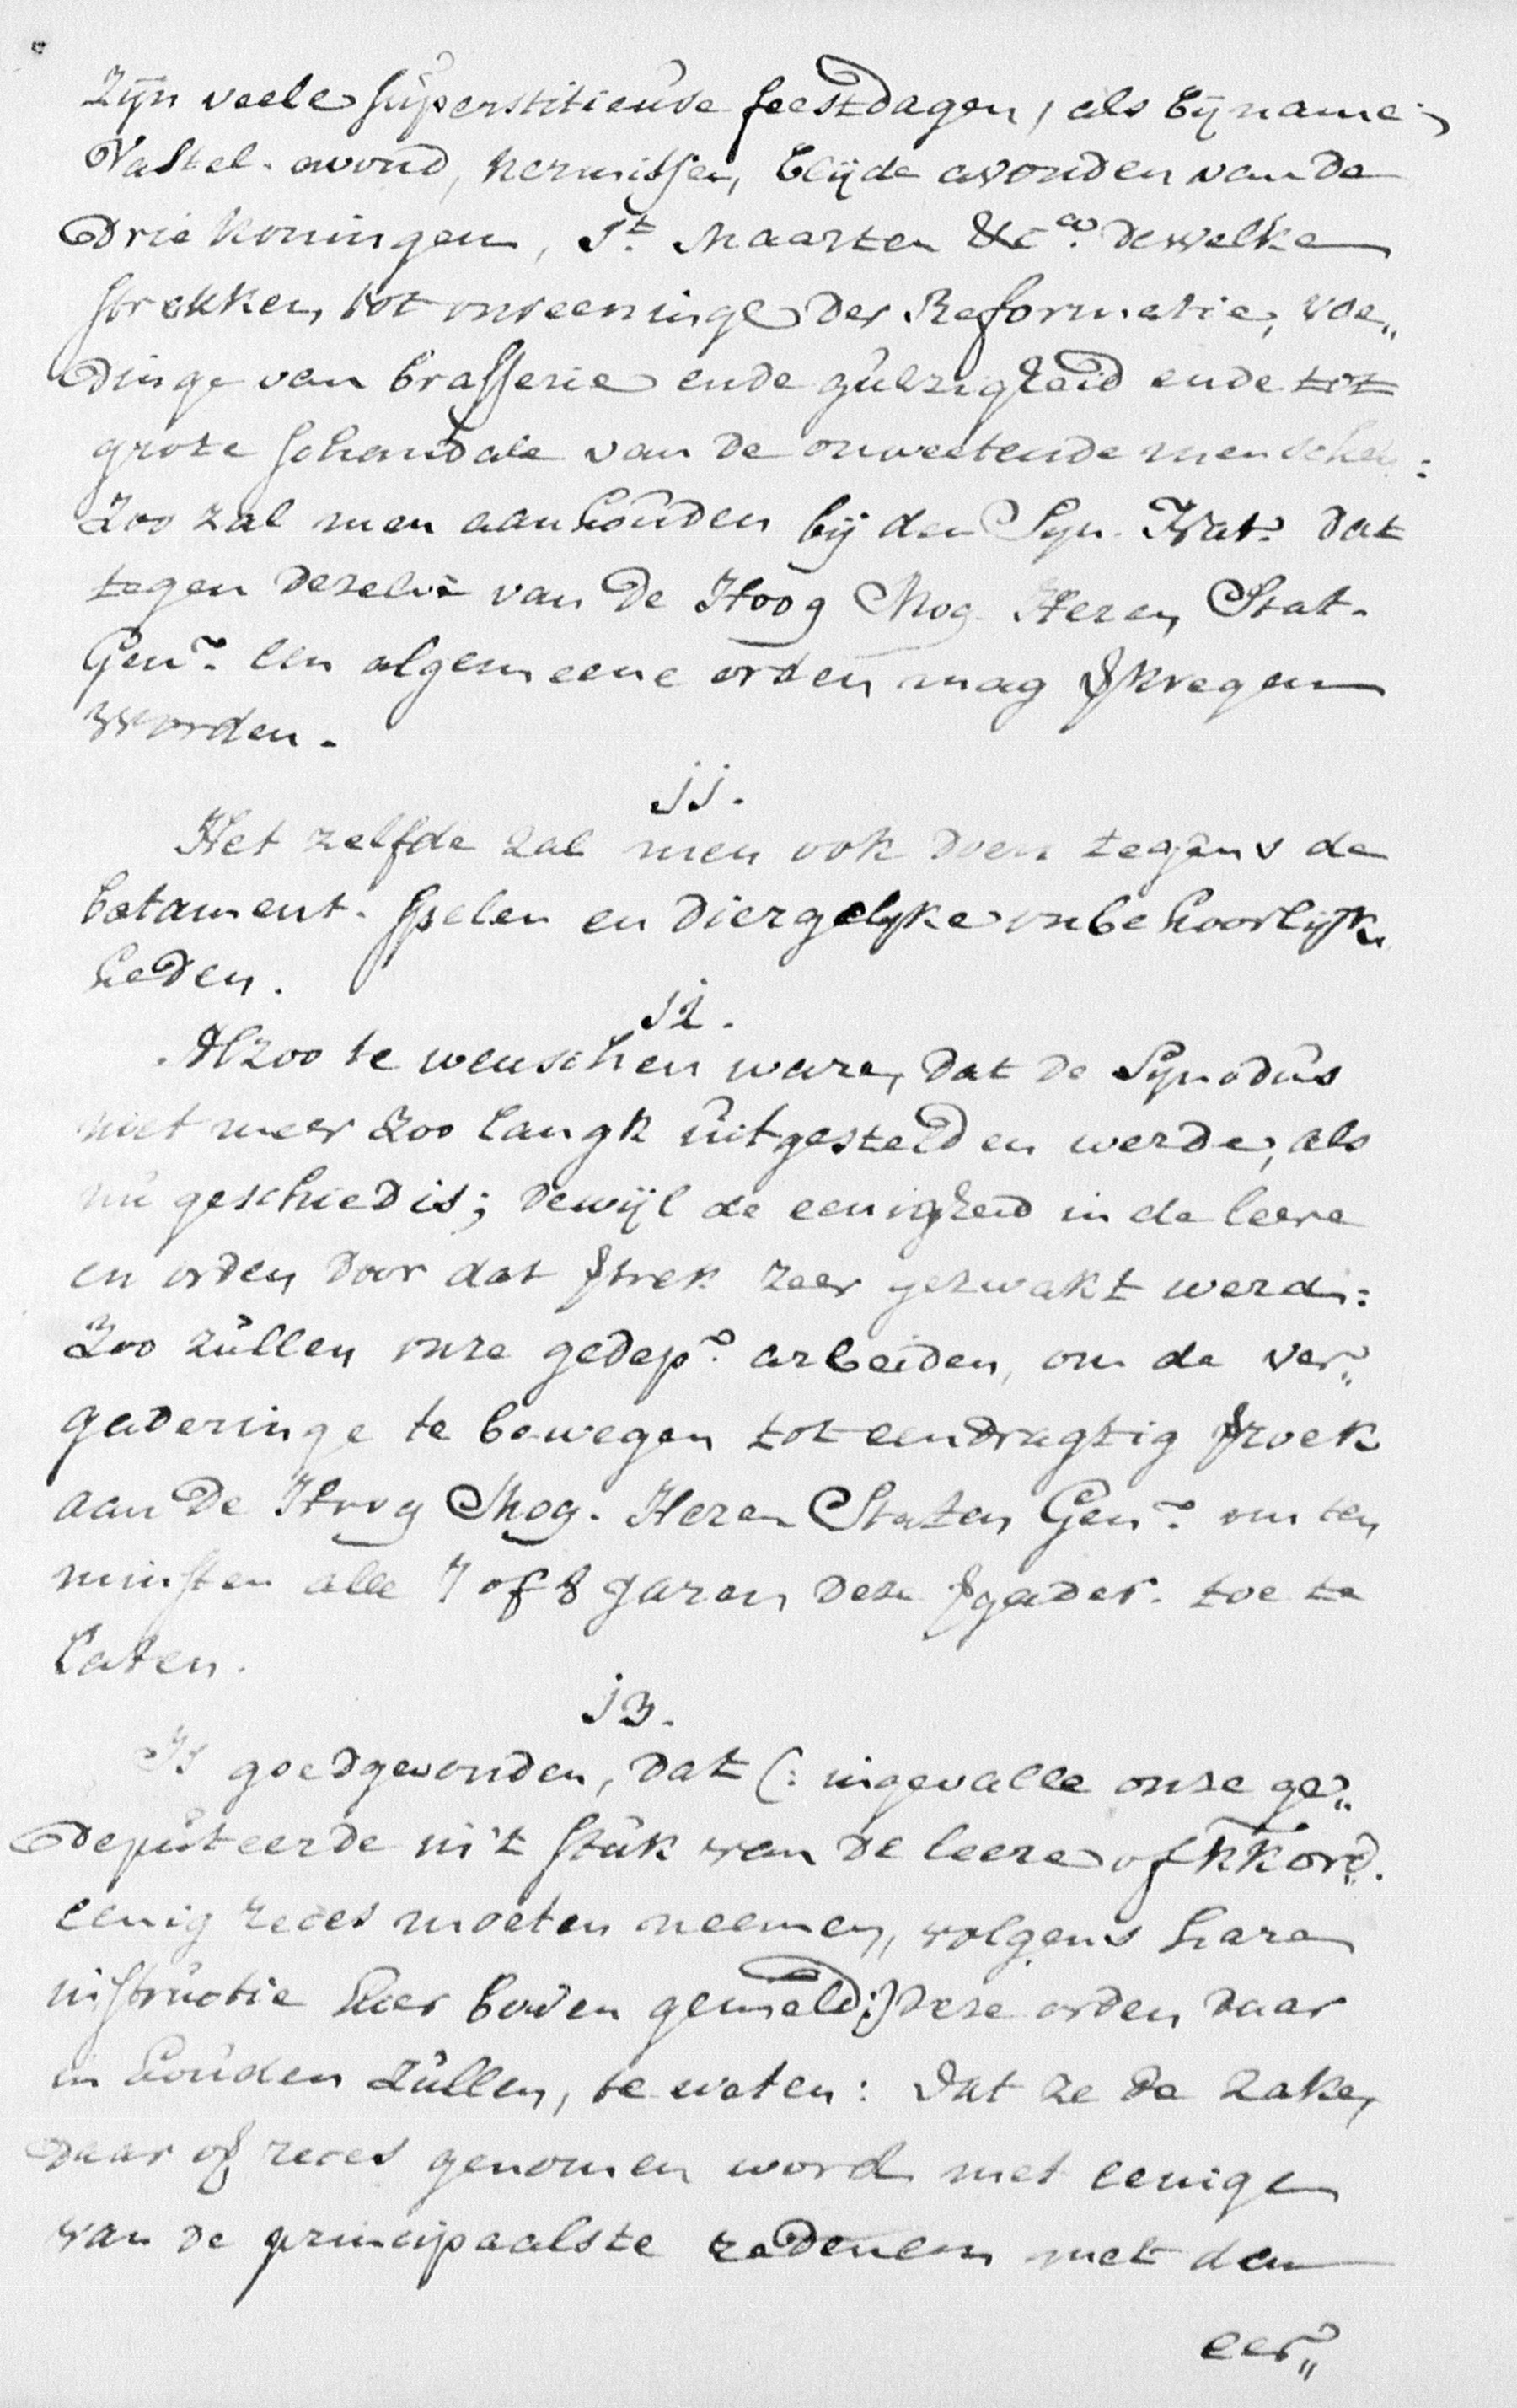 Zijn veele superstitieuse feestdagen, als bij name:
Vastel-avond, kermissen, blijde avonden van de
Drie Koningen, St. Maarten &ca. dewelke
strekken tot onreeninge der Reformatie, voe„
dinge van brasserie ende gulzigheid ende tot
grote schandale van de onweetende menschen:
Zoo zal men aanhouden bij den Syn. Nat. dat
tegen deselve van de Hoog Mog. Heren Stat.
Gen. een algemeene orden mag vkregen
worden.
11.
Het zelfde zal men ook doen tegens de
batament-spelen en diergelijke onbehoorlijk„
heden.
12.
Alzoo te wenschen ware, dat de Synodus
niet meer zoo langk uitgestelden werde, als
nu geschied is; dewijl de eenigheid in de leere
en orden door dat vtrek zeer gezwakt werd:
Zoo zullen onze gedep. arbeiden, om de ver„
gaderinge te bewegen tot eendragtig vzoek
aan de Hoog Mog. Heren Staten Gen. om ten
minsten alle 7 of 8 Jaren deze vgader. toe te
laten.
13.
Is goedgevonden, dat (: ingevalle onse ge„
deputeerde in't stuk van de leere of KKord.
eenig reces moeten neemen, volgens hare
instructie hier boven gemeld:) deze orden daar
in houden zullen, te weten: dat ze de zake,
daar of reces genomen word met eenige
van de principaalste redenen met den
eer„